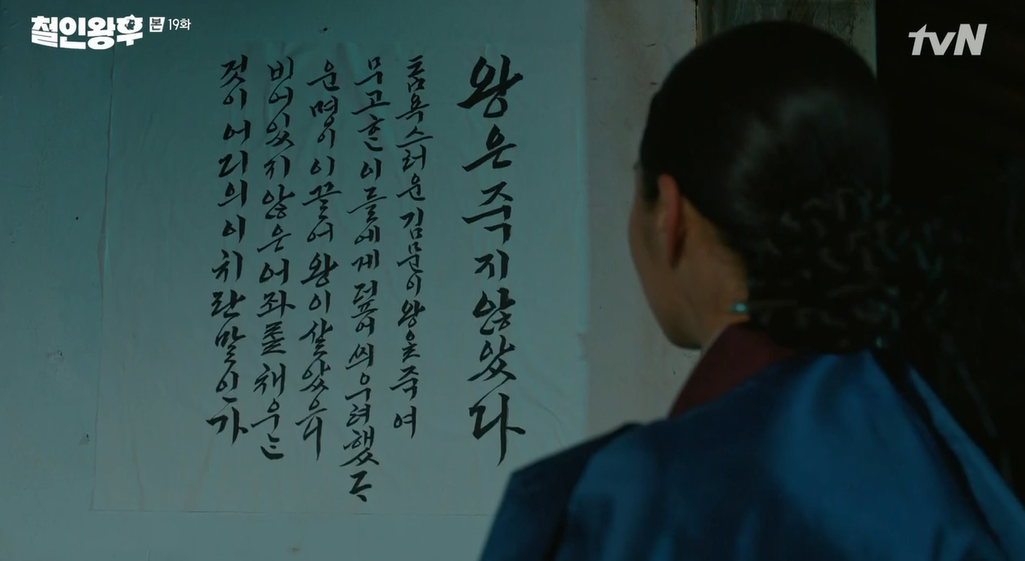 철인왕후 본 19화
tvN
왕은죽지않았다
김문이 왕을 죽여
이들에게 덮어 씌우려했고
운명이 이끌어 왕이 살았으니
비어있지 않은 어좌를 채우는
것이 어디의 이치란 말인가